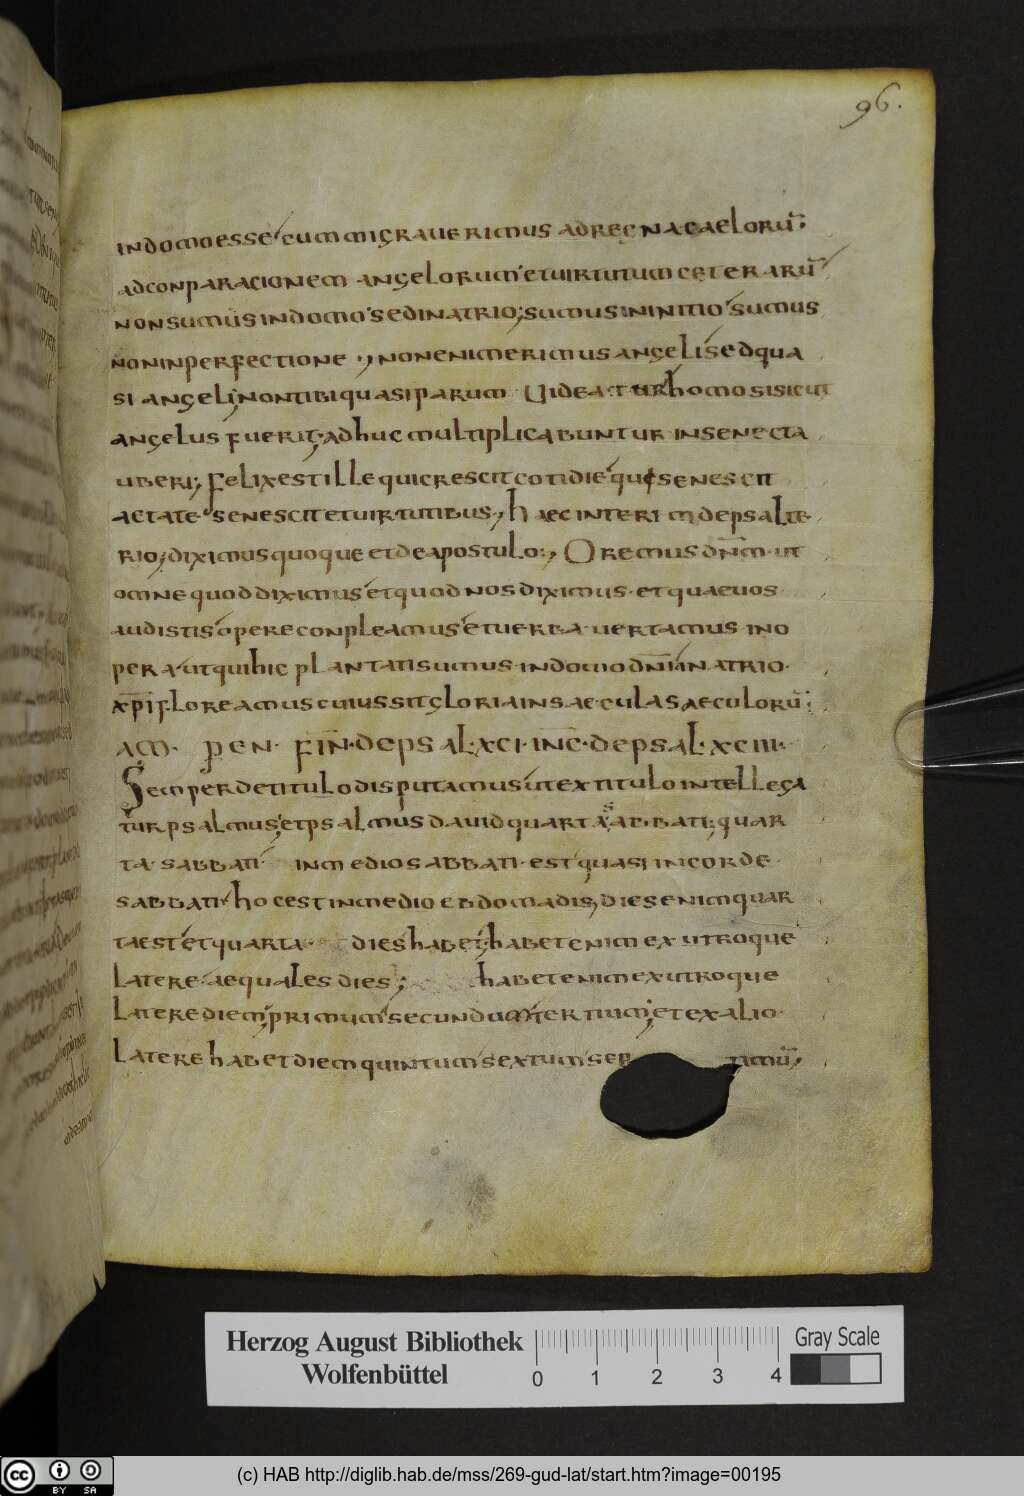 96.
indomoesse cummigrauerimus adregnacaeloru̅;
adconparacionem angelorum etuirtutum ceteraru̅
nonsumus indomo sedinatrio; sumus ininitio sumus
noninperfectione, nonenimerimus angeli sedqua
si angeli, nontibiquasiparum Uideatur homo sisicut
angelus fuerit, adhuc multiplicabuntur insenecta
uberi; felixestille quicrescitcotidie quisenescit
aetate senescit etuirtutibus, haecinterim depsalte
rio, diximusquoque etdeapostulo, Oremus dn̅m ut
omnequoddiximus etquod nosdiximus et quaeuos
audistis opereconpleamus etuerba uertamus ino
pera utquihic plantatisumus indomo dn̅i inatrio
xp̅i floreamus cuiussitgloriainsaeculasaeculoru̅;
am. pen. fin̅. depsal. xci. inc̅. depsal. xciii.
Semperdetitulodisputamus utextitulointellega
tur psalmus, etpsalmus dauid quarta sabbati; quar
ta sabbati inmediosabbati est quasi incorde
sabbati hocest inmedio ebdomadis, diesenimquar
taest etquarta dieshabet, habetenim exutroque
latere aequales dies; habetenimexutroque
laterediem, primum, secundum, tertium, etexalio
latere habetdiemquintum sextum sep timu̅,
Herzog August Bibliothek
Wolfenbüttel
0 1 2 3 4
Gray Scale
cc BY SA
(c) HAB http://diglib.hab.de/mss/269-gud-lat/start.htm?image=00195